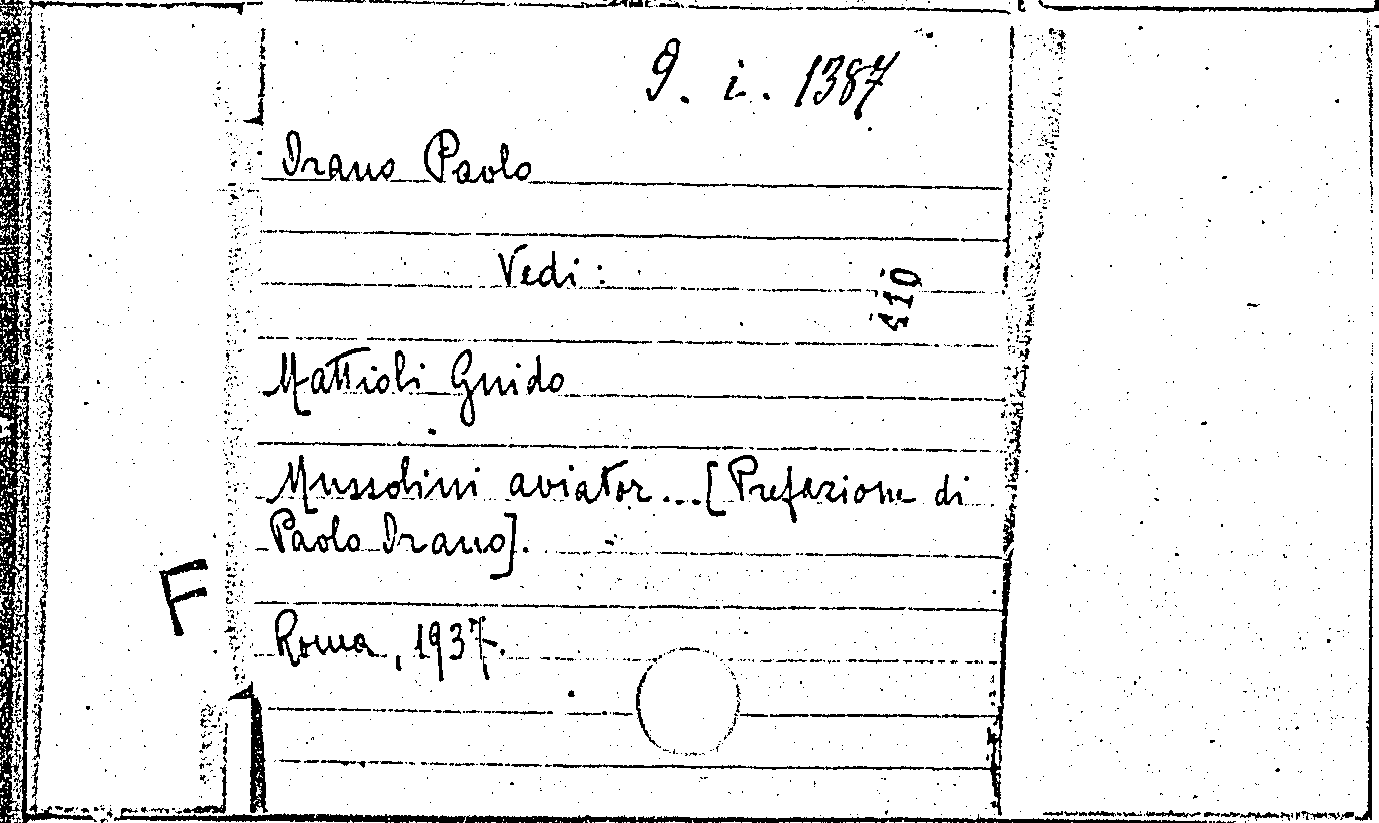 9. i. 1387
Orano Paolo
Vedi:
410
Mattioli Guido
Mussolini aviator...[Prefazione di
Paolo Orano].
F
Roma, 1937.